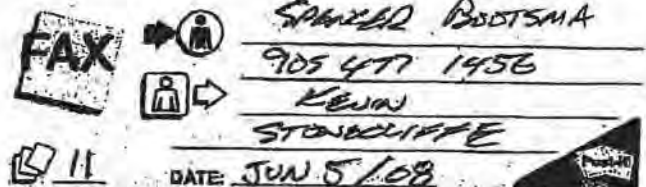 FAX
SPENCER BOOTSMA
905 477 1456
KEVIN
STONECLIFFE
11
DATE: JUN 5/08
Post-it